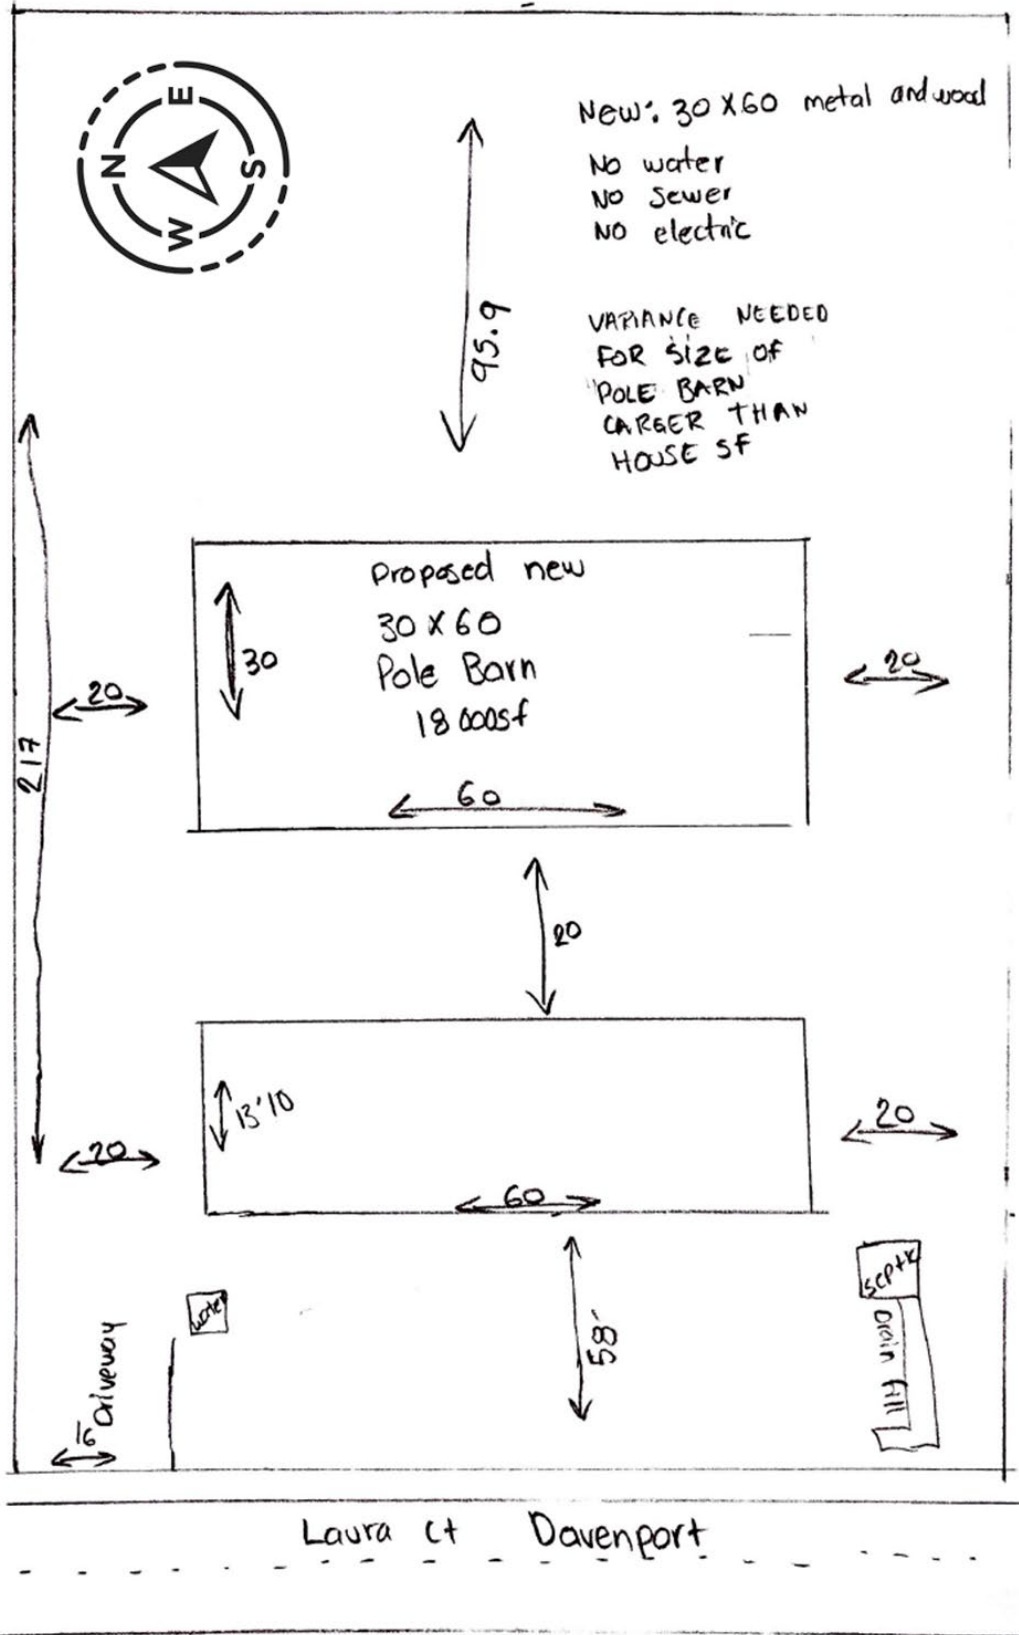 E
N
S
W
New: 30 X 60 metal and wood
No water
No sewer
NO electric
95.9
VARIANCE NEEDED
FOR SIZE OF
"POLE BARN"
CARGER THAN
HOUSE SF
217
Proposed new
30 X 60
Pole Barn
18000sf
30
60
20
20
20
13'10
60
20
20
58'
water
septic
Drain fill
Driveway
16
Laura Ct Davenport